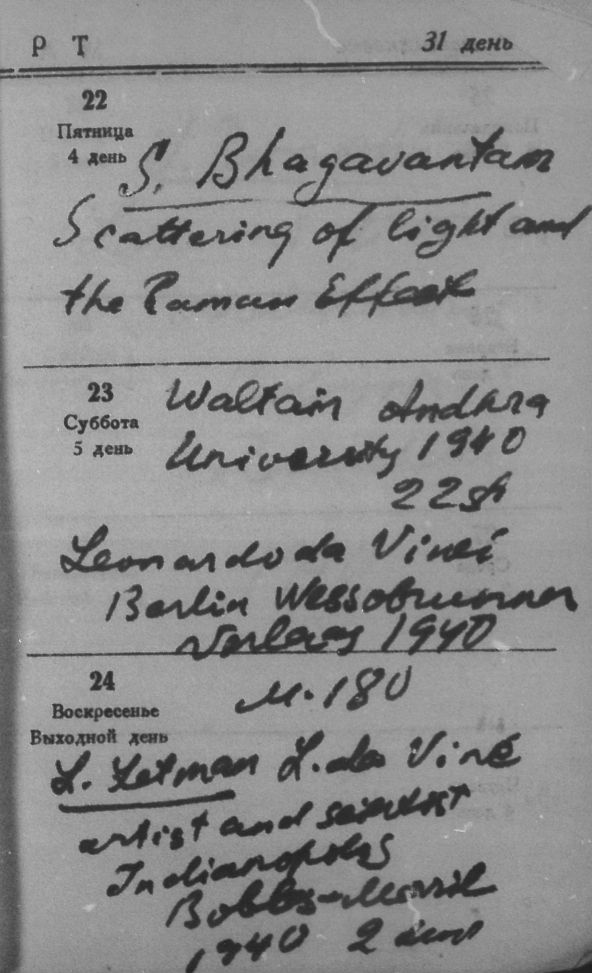 Р Т 31 день
22
Пятница
4 день
S. Bhagavantam
Scattering of light and
the Raman Effect
23
Суббота
5 день
Waltair Andhra
University 1940
22 sh
Leonardo da Vinci
Berlin Wessobrunner
Verlag 1940
24
Воскресенье
Выходной день
M. 180
L. Letman L. da Vinci
artist and scientist
Indianopolis
Bobbs-Merril
1940 2